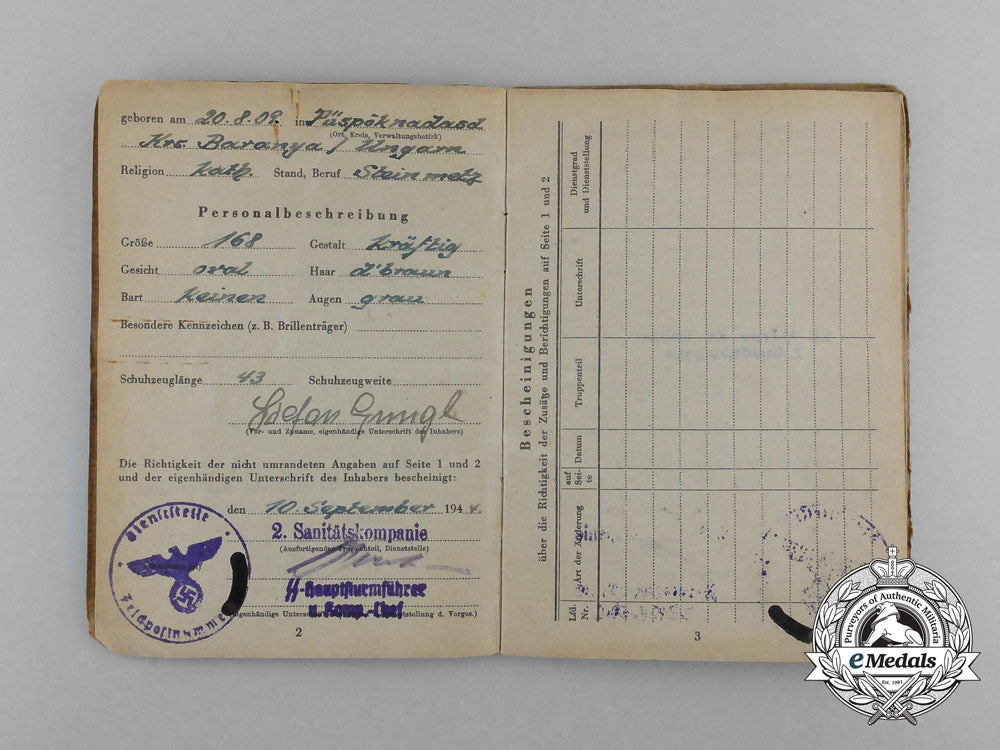 geboren am 20.8.09. in Püspöknadasd
(Ort, Kreis, Verwaltungsbezirk)
Krs. Baranya / Ungarn
Religion kath. Stand, Beruf Steinmetz
Personalbeschreibung
Größe 168 Gestalt kräftig
Gesicht oval Haar d'braun
Bart keinen Augen grau
Besondere Kennzeichen (z. B. Brillenträger)
Schuhzeuglänge 43 Schuhzeugweite
Stefan Gungl
(Vor- und Zuname, eigenhändige Unterschrift des Inhabers)
Die Richtigkeit der nicht umrandeten Angaben auf Seite 1 und 2
und der eigenhändigen Unterschrift des Inhabers bescheinigt:
den 10. September 1944.
2. Sanitätskompanie
(Ausfertigender Truppenteil, Dienststelle)
SS-Hauptsturmführer
u. Komp.-Chef
(Eigenhändige Unterschrift stellung d. Vorges.)
Dienststelle
Feldpostnumme
2
Bescheinigungen
über die Richtigkeit der Zusätze und Berichtigungen auf Seite 1 und 2
Lfd. Nr.
Art der Änderung
auf Sei-te
Datum
Truppenteil
Unterschrift
Dienstgrad
und Dienststellung
3
Purveyors of Authentic Militaria
eMedals
Est. 1981